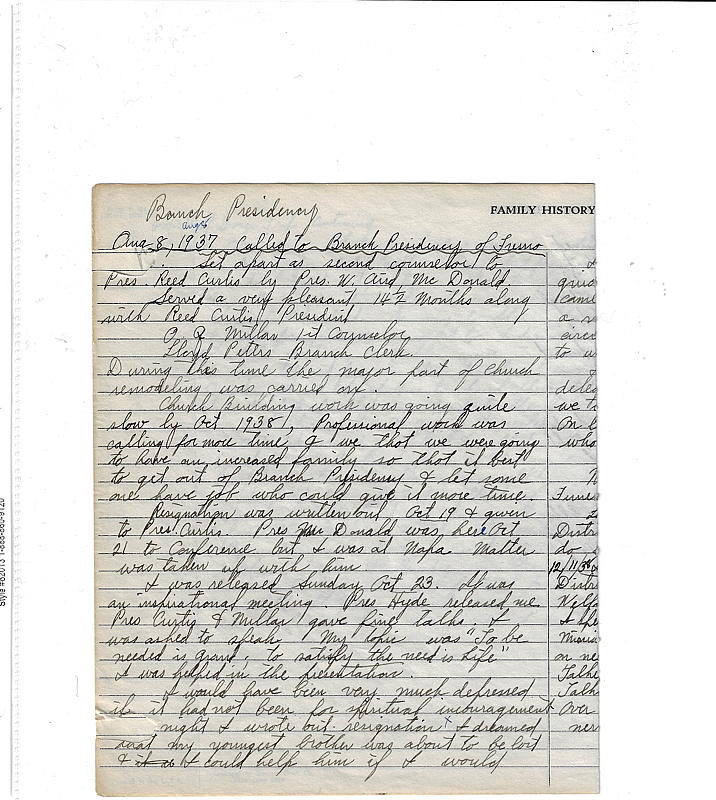 Branch Presidency
FAMILY HISTORY
Aug 8
Aug 8, 1937 Called to Branch Presidency of Fresno
Set apart as second counselor to
Pres. Reed Curtis by Pres. W. Aird Mc Donald
Served a very pleasant 14½ Months along
with Reed Curtis President
O. R. Millar 1st Counselor
Lloyd Peters Branch Clerk.
During this time the major part of Church
remodeling was carried on.
Church Building work was going quite
slow by Oct 1938, Professional work was
calling for more time & we that we were going
to have an increased family so that it best
to get out of Branch Presidency & let some
one have job who could give it more time.
Resignation was written out Oct 19 & given
to Pres. Curtis. Pres Mc Donald was here Oct
21 to Conference but I was at Napa Matter
was taken up with him
I was released Sunday Oct 23. It was
an inspirational meeting. Pres Hyde released me
Pres Curtis & Millar gave fine talks. I
was asked to speak My topic was "To be
needed is grand; to satisfy the need is Life"
I was helped in the presentation.
I would have been very much depressed
if it had not been for spiritual encouragement
night I wrote out resignation I dreamed
that my youngest brother was about to be lost
& I could help him if I would
came
to w
we t
On
who
Distri
do
12/11/38
Distri
on ne
Talke
Talk
Over
ner
Style #62013 1-888-880-9120